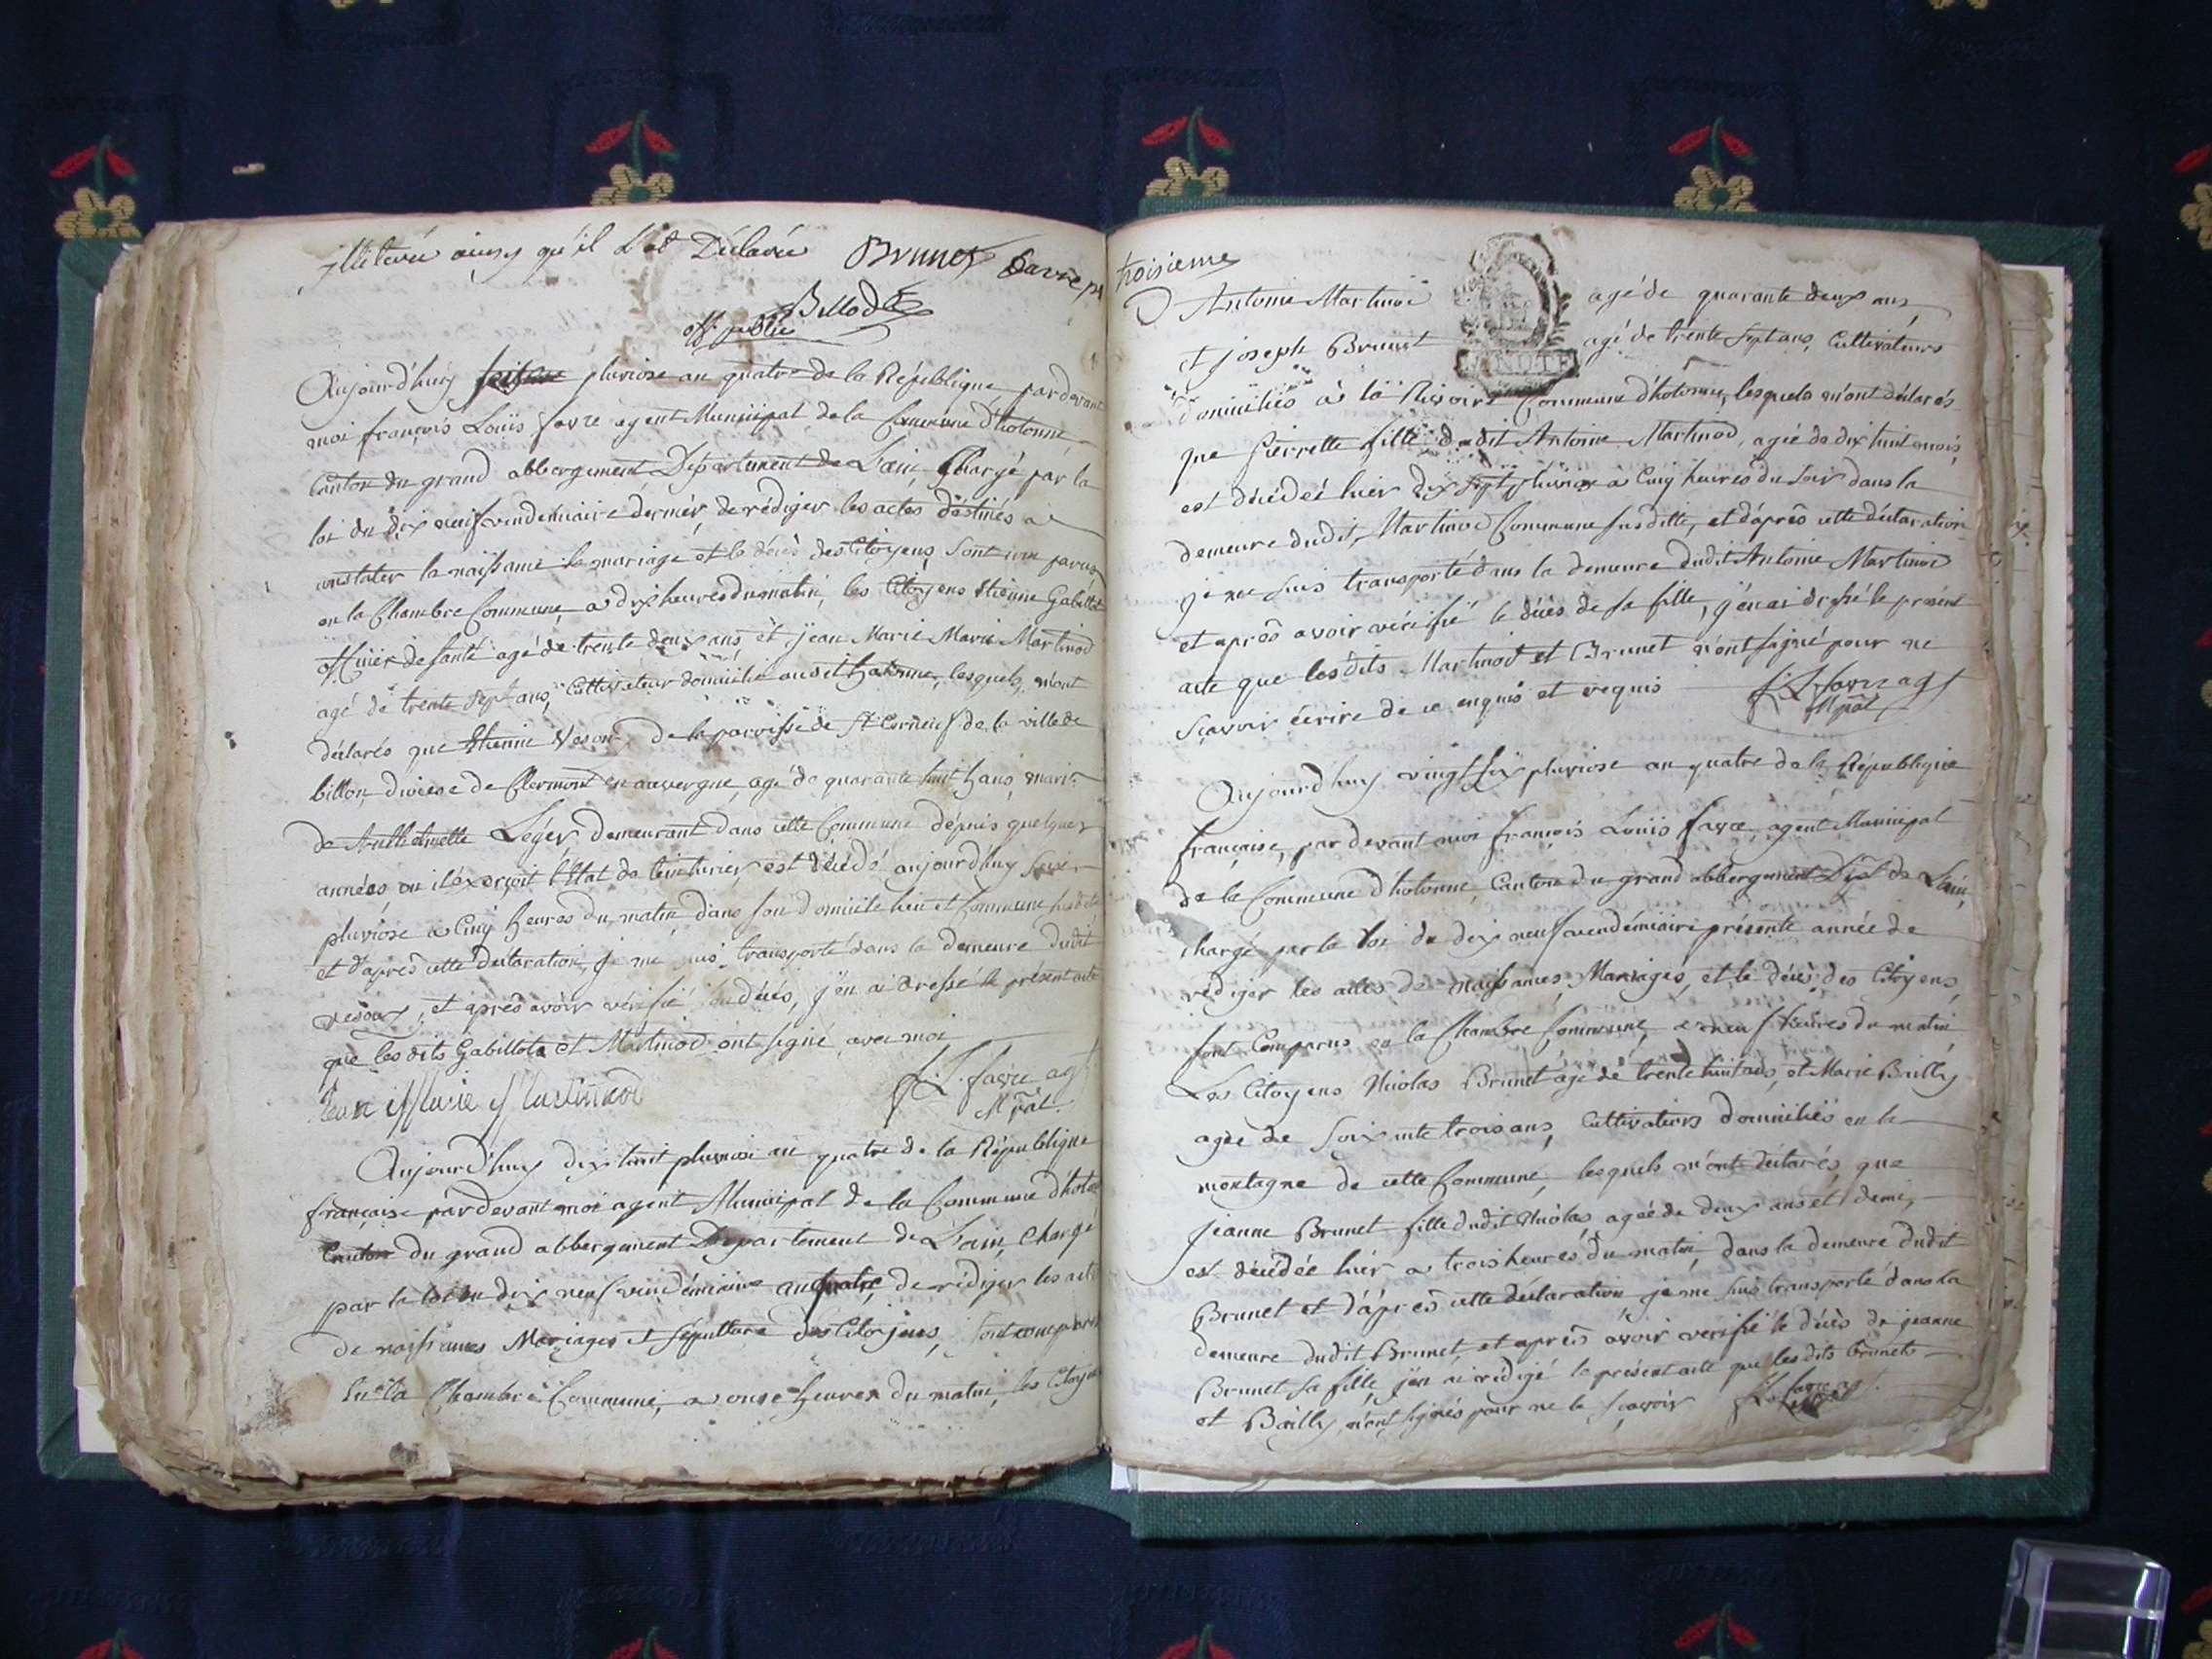 illiteré ainsy qu'il l'at Déclaré Brunet favre
Billod
off. public
Aujourd'huy seizieme pluviose an quatre de la République, pardevant
moi françois Louis favre agent Municipal de la Commune d'hotonne
Canton du grand abbergement Département de L'ain, Chargé par la
loi du dix neuf vendemiaire dernier, de rédiger les actes déstinés a
constater la naissance le mariage et le décès des Citoyens, sont comparus
en la Chambre Commune, a dix heures du matin, les Citoyens Etienne Gabillot
officier de santé agé de trente deux ans, et jean Marie Marie Martinod
agé de trente sept ans, Cultivateur domicilié audit hotonne, lesquels m'ont
déclarés que Etienne Vesoux de la paroisse de St de la ville de
billon, diocese de Clermont en auvergne, agé de quarante huit hans, mari
de Anthelmette Leger demeurant dans cette Commune dépuis quelques
années, ou il éxerçoit l'Etat de teinturier, est décédé aujourd'huy seize
pluviose a Cinq heures du matin, dans son domicile lieu et Commune susdite
et d'après cette déclaration, je me suis transporté dans la demeure dudit
vesoux, et après avoir vérifié son décès, j'en ai dressé le présent acte
que les dits Gabillot et Martinod ont signé avec moi
Jean Marie Martinod f. L. favre agt
Mpal.
Aujourd'huy dix huit pluviose an quatre de la République
française pardevant moi agent Municipal de la Commune d'hotonne
Canton du grand abbergement Departement de L'ain, Chargé
par la loi du dix neuf vendémiaire an quatre de rédiger les actes
de naissances Mariages et sépulture des Citoyens, sont comparus
En la Chambre Commune, a onze heures du matin, les Citoyens
troisieme
Antoine Martinod agé de quarante deux ans,
et joseph Brunet agé de trente sept ans, Cultivateurs
MINUTE
domiciliés à la Rivoire Commune d'hotonne, lesquels m'ont déclarés
que Pierrette fille dudit Antoine Martinod, agée de dix huit mois,
est décédée hier dix sept pluviose a Cinq heures du soir dans la
demeure dudit Martinod Commune susditte, et d'après cette déclaration
je me suis transporté dans la demeure dudit Antoine Martinod
et après avoir vérifié le décès de sa fille, j'en ai dressé le présent
acte que lesdits Martinod et Brunet n'ont signé pour ne
sçavoir écrire de ce enquis et requis f. L. favre agt
Mpal
Aujourd'huy vingt six pluviose an quatre de la République
française, pardevant moi françois Louis favre, agent Municipal
de la Commune d'hotonne, Canton du grand abbergement Dépt de L'ain,
chargé par la loi du dix neuf vendémiaire présente année de
rédiger les actes de naissances, Mariages, et le décès des Citoyens,
sont Comparus en la Chambre Commune, a neuf heures du matin
Les Citoyens Nicolas Brunet agé de trente huit ans, et Marie Bailly
agée de soixante trois ans, Cultivateurs domiciliés en la
montagne de cette Commune, lesquels m'ont déclarés, que
jeanne Brunet fille dudit Nicolas, agée de deux ans et demi,
est décédée hier a trois heures du matin, dans la demeure dudit
Brunet et d'après cette déclaration je me suis transporté dans la
demeure dudit Brunet, et après avoir verifié le décès de jeanne
Brunet sa fille, j'en ai rédigé le présent acte que lesdits Brunet
et Bailly, n'ont signés pour ne le sçavoir f. L. favre agt.